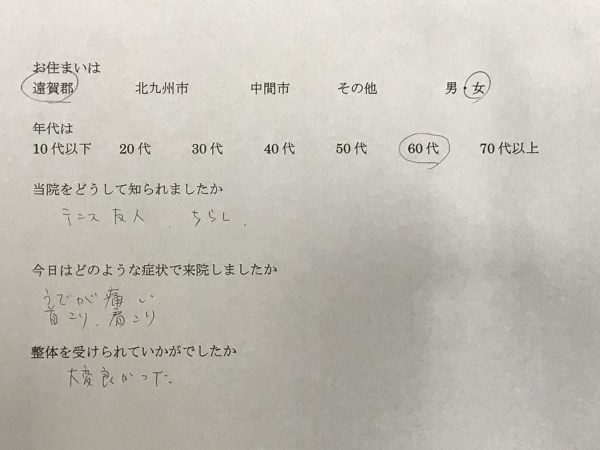 お住まいは
遠賀郡 北九州市 中間市 その他 男・女
年代は
10代以下 20代 30代 40代 50代 60代 70代以上
当院をどうして知られましたか
テニス友人、ちらし、
今日はどのような症状で来院しましたか
うでが痛い
首こり、肩こり
整体を受けられていかがでしたか
大変良かった